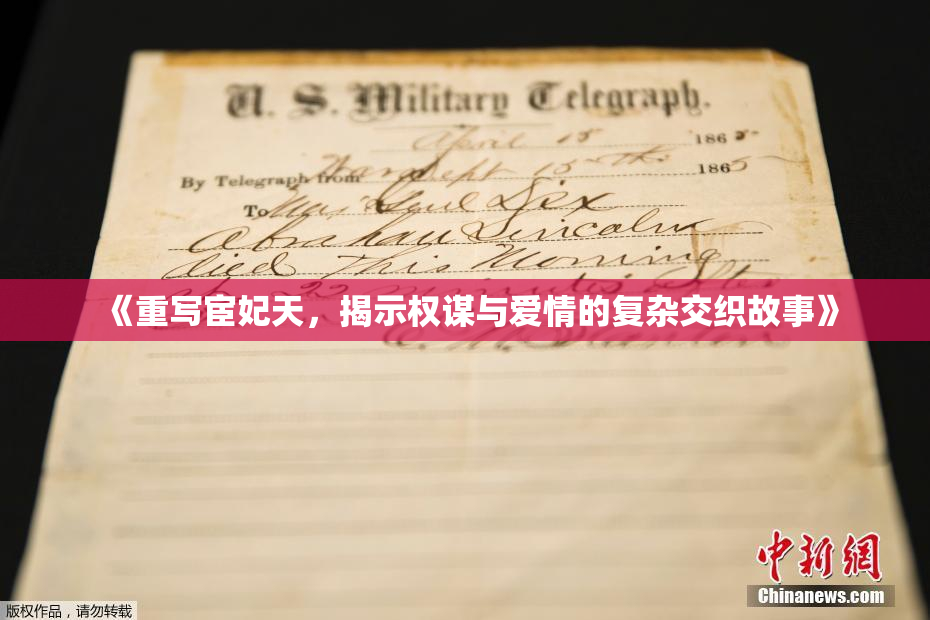 U. S. Military Telegraph.
April 15 1865.
By Telegraph from War Dept 15th 1865
To Maj Genl Dix
Abraham Lincoln
died This Morning
at 22 minutes after
《重写宦妃天，揭示权谋与爱情的复杂交织故事》
中新网
Chinanews.com
版权作品，请勿转载